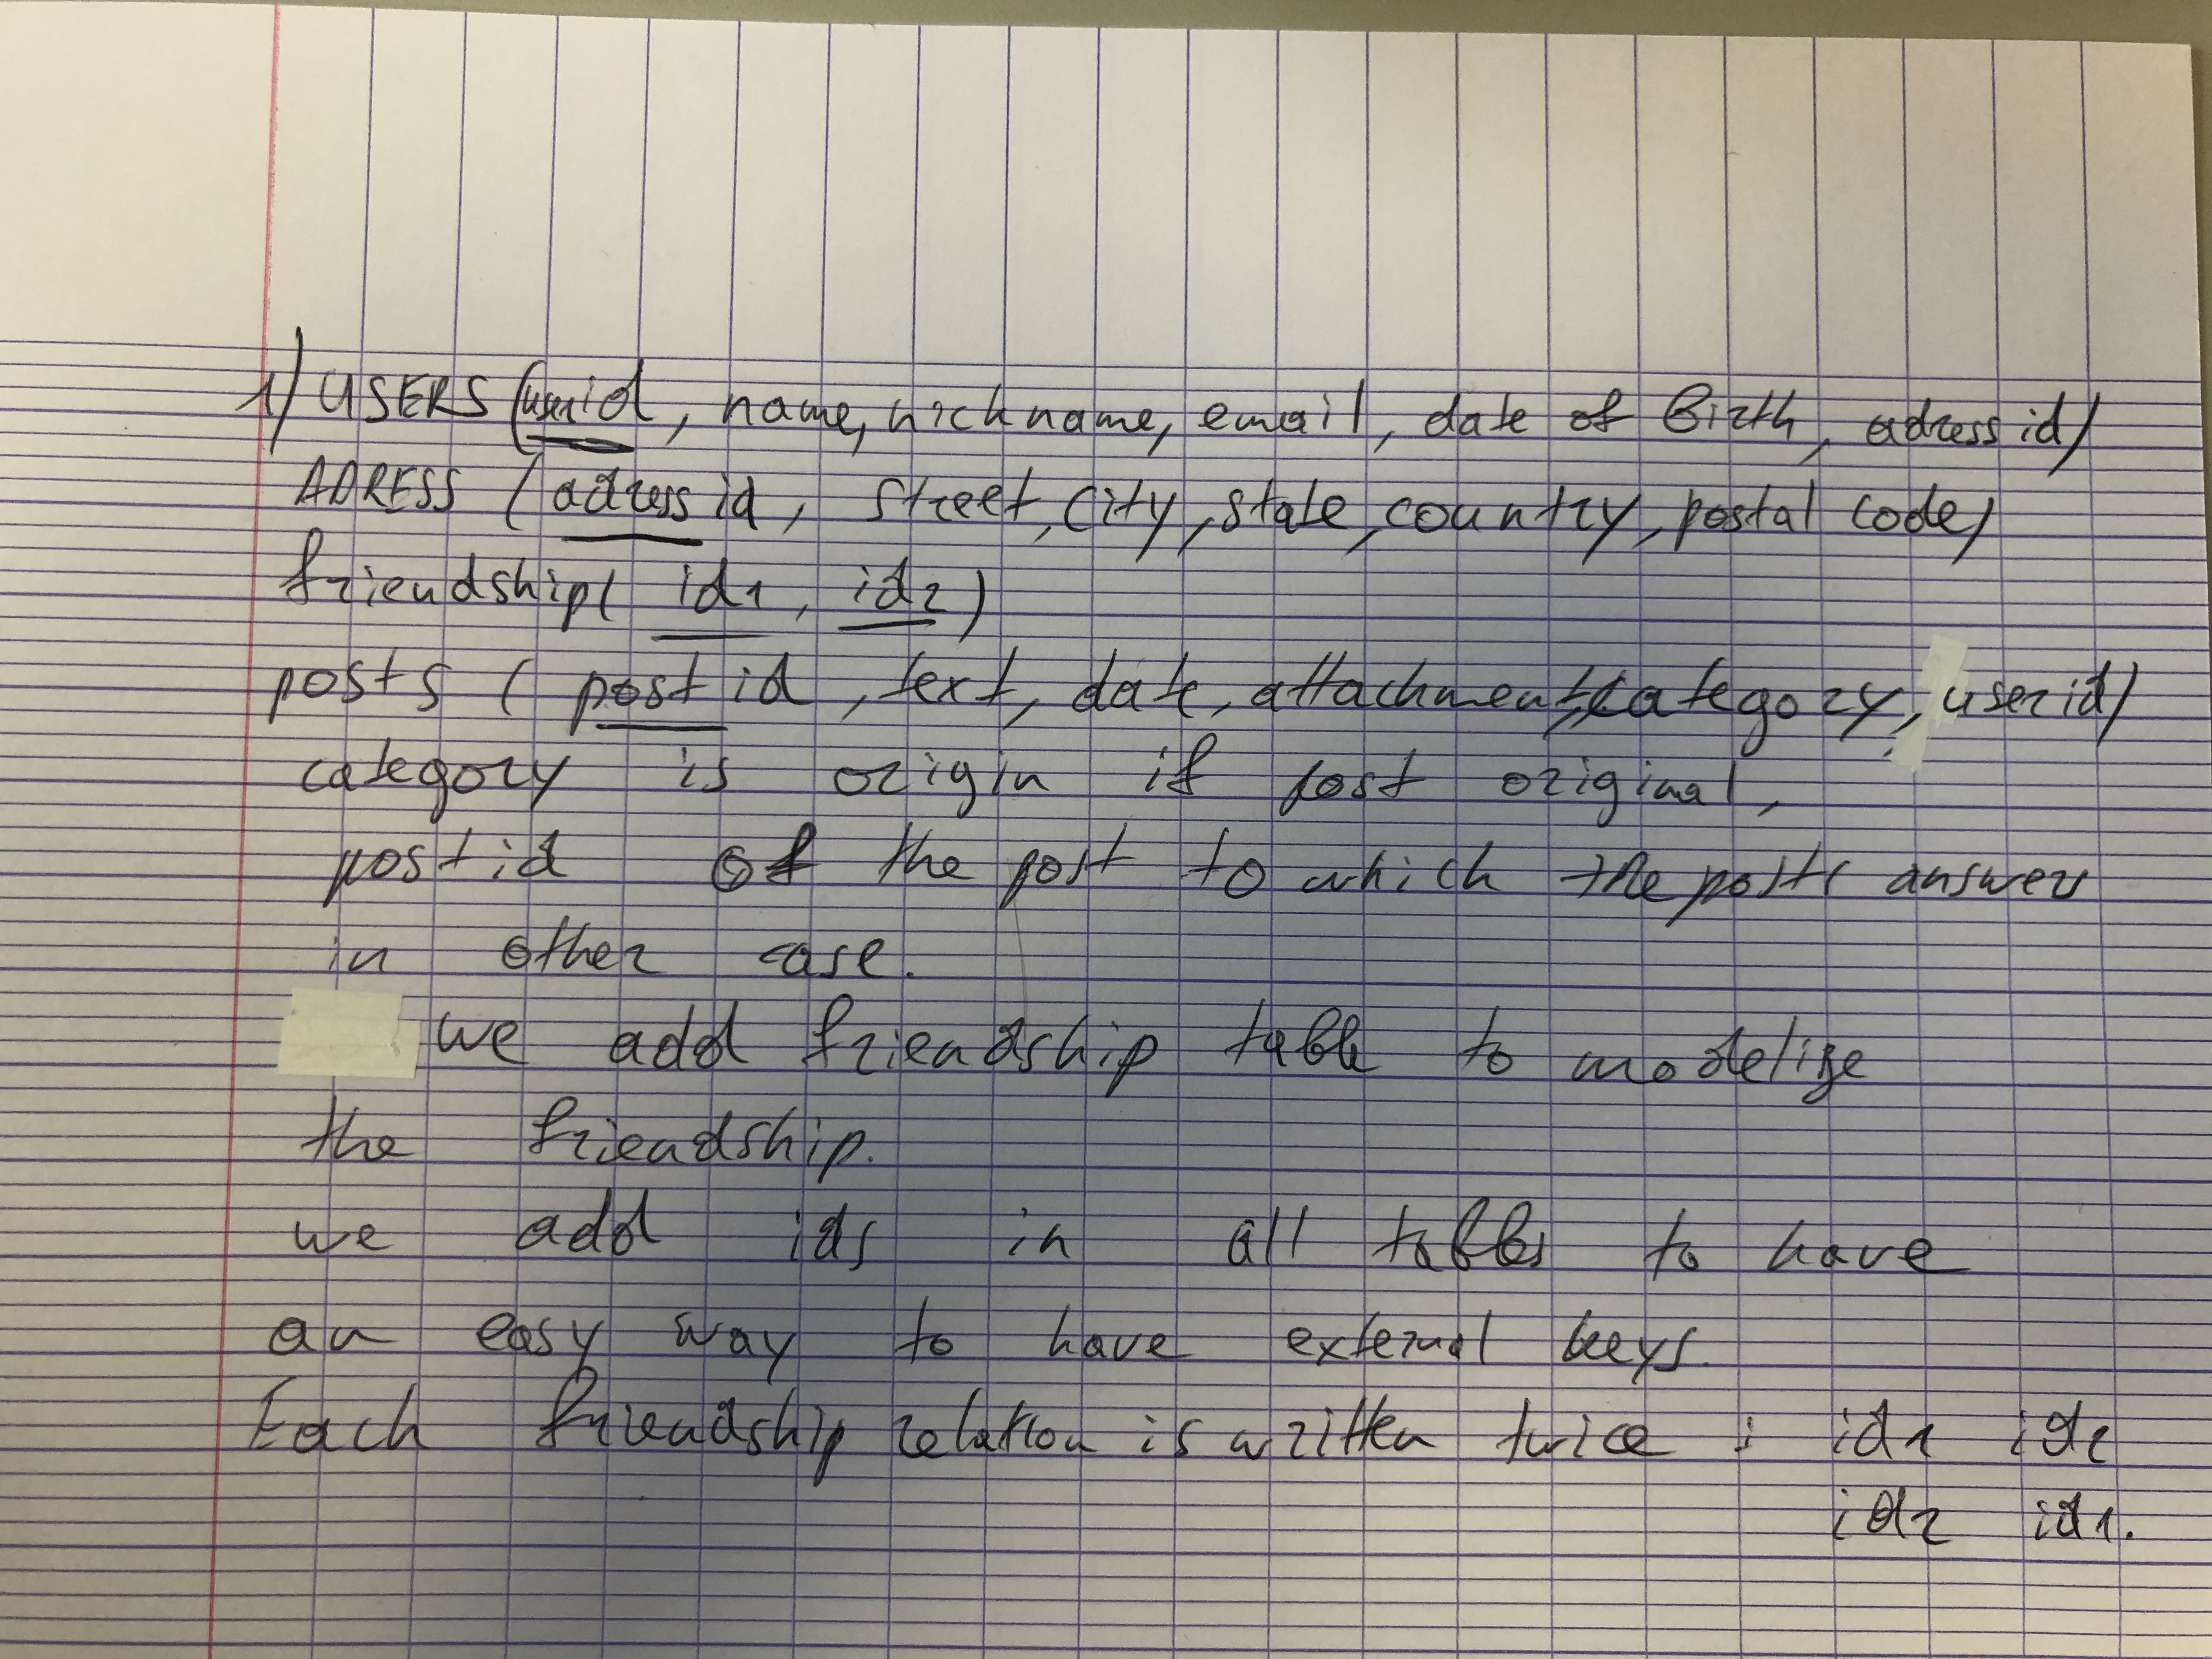 1) USERS (userid, name, nickname, email, date of Birth, adress id)
ADRESS (adress id, street, city, state, country, postal code)
friendship( id1, id2)
posts ( post id, text, date, attachment, category, userid)
category is origin if post original,
postid of the post to which the posts answer
in other case.
we add friendship table to modelize
the friendship.
we add ids in all tables to have
an easy way to have external keys.
Each friendship relation is written twice : id1 id2
id2 id1.